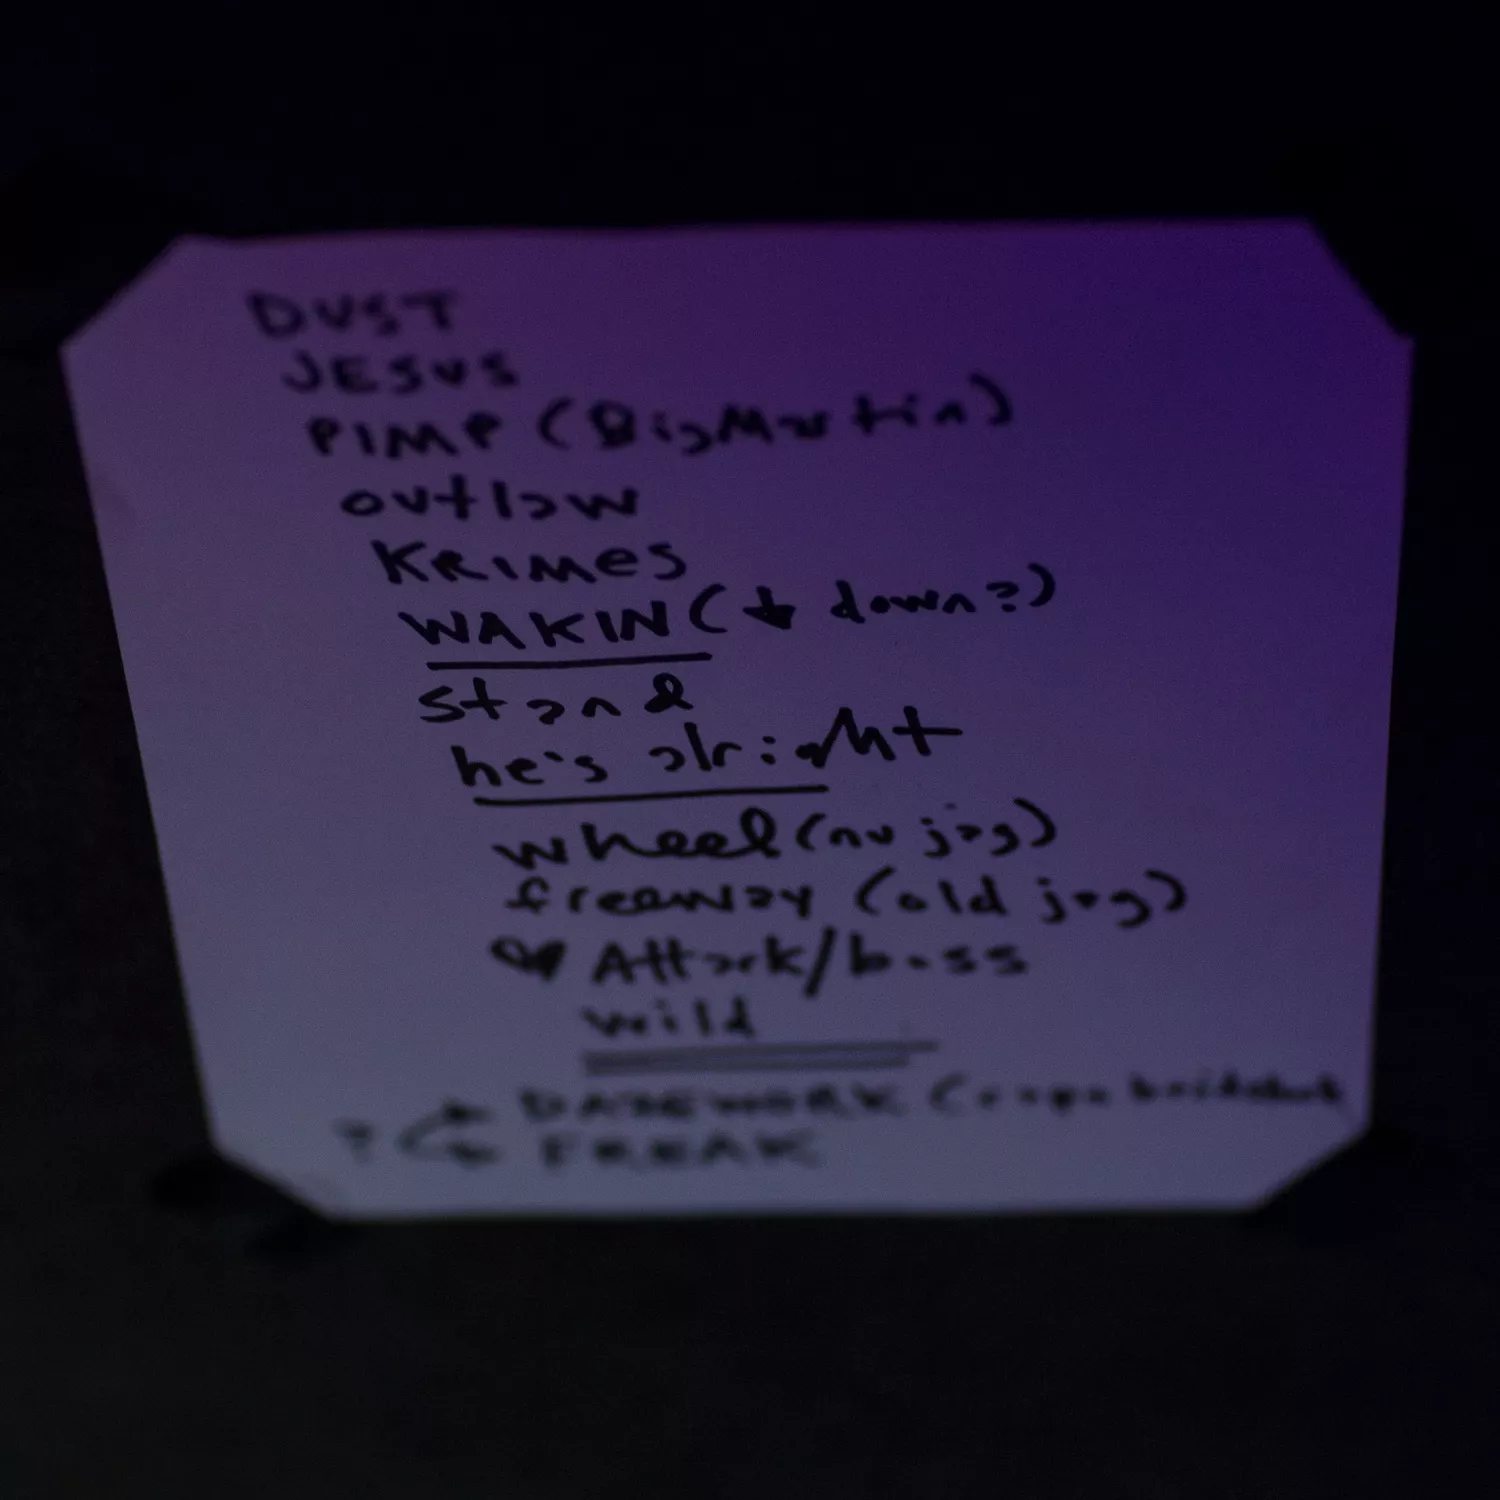 DUST
JESUS
PIMP (Big Martin)
outlaw
KRIMES
WAKIN (↓ down?)
stand
he's alright
wheel (nu jag)
freeway (old jag)
Attack/bass
wild
? DAZEWORK (
FREAK